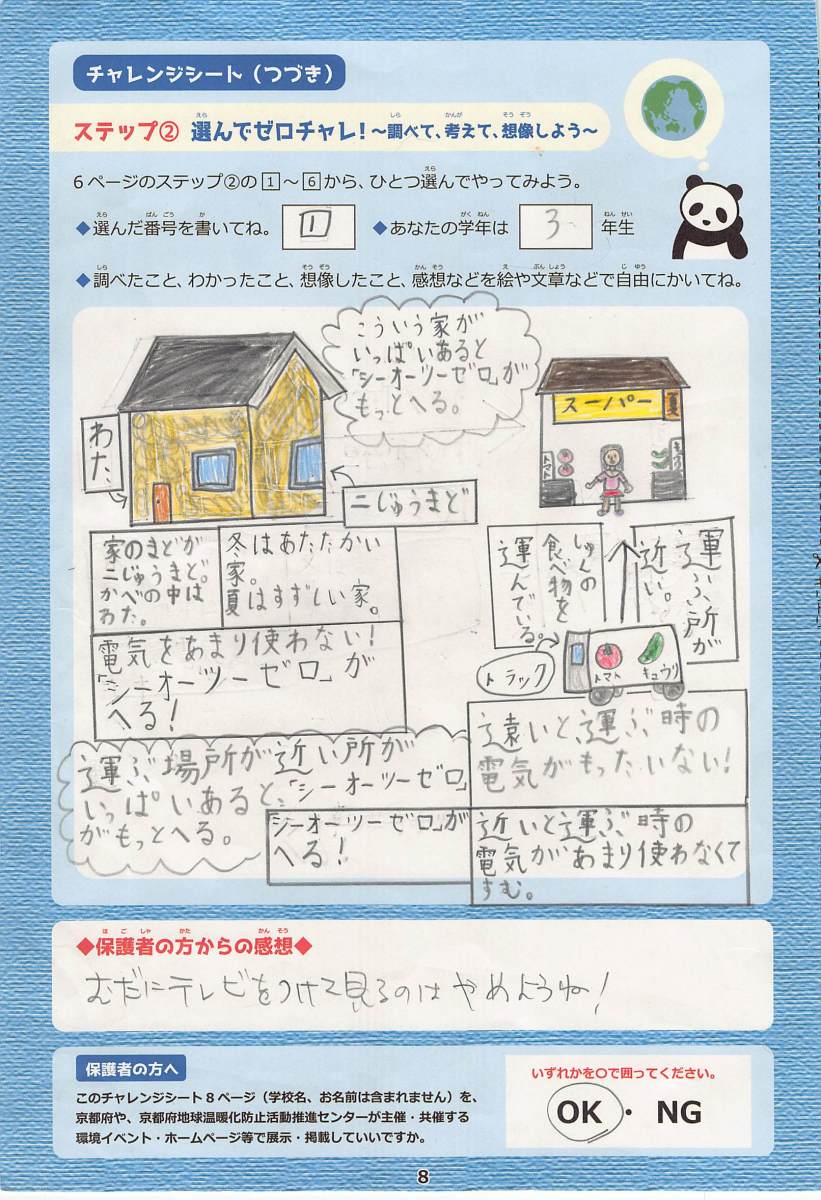 チャレンジシート(つづき)
ステップ② 選んでゼロチャレ!~調べて、考えて、想像しよう~
6ページのステップ②の1~6から、ひとつ選んでやってみよう。
◆選んだ番号を書いてね。 1 ◆あなたの学年は 3 年生
◆調べたこと、わかったこと、想像したこと、感想などを絵や文章などで自由にかいてね。
こういう家が
いっぱいあると
「シーオーツーゼロ」が
もっとへる。
わた、
二じゅうまど
家のまどが
二じゅうまど。
かべの中は
わた。
冬はあたたかい
家。
夏はすずしい家。
電気をあまり使わない!
「シーオーツーゼロ」が
へる!
スーパー
トマト
キュウリ
運ぶ所が
近い。
食べ物を
運んでいる。
トラック
トマト
キュウリ
遠いと、運ぶ時の
電気がもったいない!
近いと運ぶ時の
電気があまり使わなくて
すむ。
シーオーツーゼロ」が
へる!
運ぶ場所が近い所が
いっぱいあると、「シーオーツーゼロ」
がもっとへる。
◆保護者の方からの感想◆
むだにテレビをつけて見るのはやめようね!
保護者の方へ
このチャレンジシート8ページ(学校名、お名前は含まれません)を、
京都府や、京都府地球温暖化防止活動推進センターが主催・共催する
環境イベント・ホームページ等で展示・掲載していいですか。
いずれかを○で囲ってください。
OK・NG
8